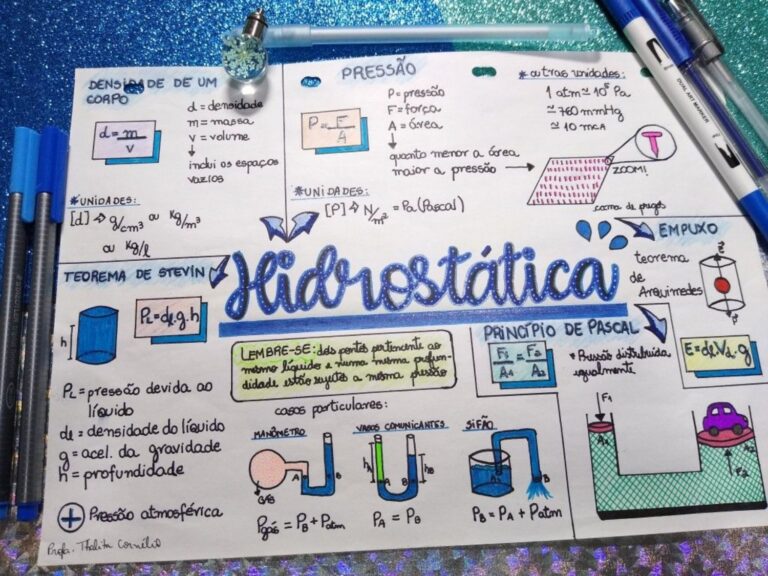 DENSIDADE DE UM
CORPO
d = m/v
d = densidade
m = massa
v = volume
↓
inclui os espaços
vazios
*UNIDADES:
[d] ⇒ g/cm³ ou kg/m³
ou kg/l
PRESSÃO
P = F/A
P = pressão
F = força
A = área
↓
quanto menor a área
maior a pressão →
*UNIDADES:
[P] ⇒ N/m² = Pa (Pascal)
* outras unidades:
1 atm ≃ 10⁵ Pa
≃ 760 mmHg
≃ 10 mca
ZOOM!
cama de pregos
Hidrostática
TEOREMA DE STEVIN
h
PL = dL.g.h
PL = pressão devida ao
líquido
dL = densidade do líquido
g = acel. da gravidade
h = profundidade
+ Pressão atmosférica
LEMBRE-SE: dois pontos pertencente ao
mesmo líquido e numa mesma profun-
didade estão sujeitos a mesma pressão
casos particulares:
MANÔMETRO
GÁS
A
B
Pgás = PB + Patm
VASOS COMUNICANTES
hA
hB
A
B
PA = PB
SIFÃO
A
B
PB = PA + Patm
PRINCÍPIO DE PASCAL
F1/A1 = F2/A2
* Pressão distribuída
igualmente
F1
A1
A2
F2
EMPUXO
teorema
de
Arquimedes
E
P
E = dL.Vd.g
Profa. Thalita Cornélio
DUAL ART MARKER